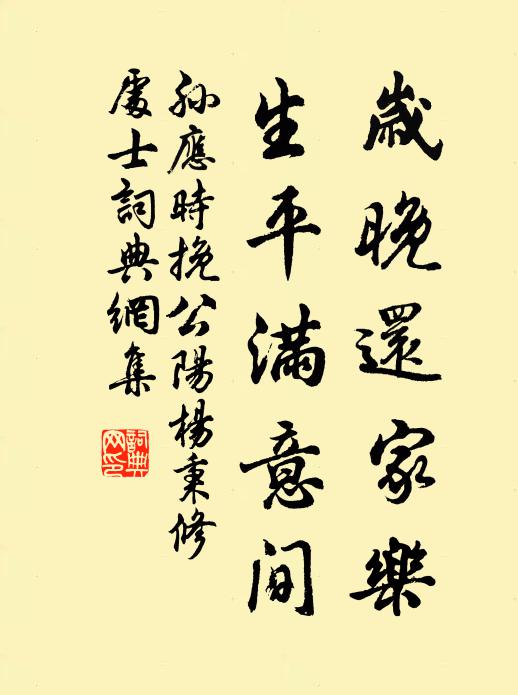 歲晚還家樂
生平滿意間
孫應時挽公陽楊秉修
處士詞典網集
詞典網印